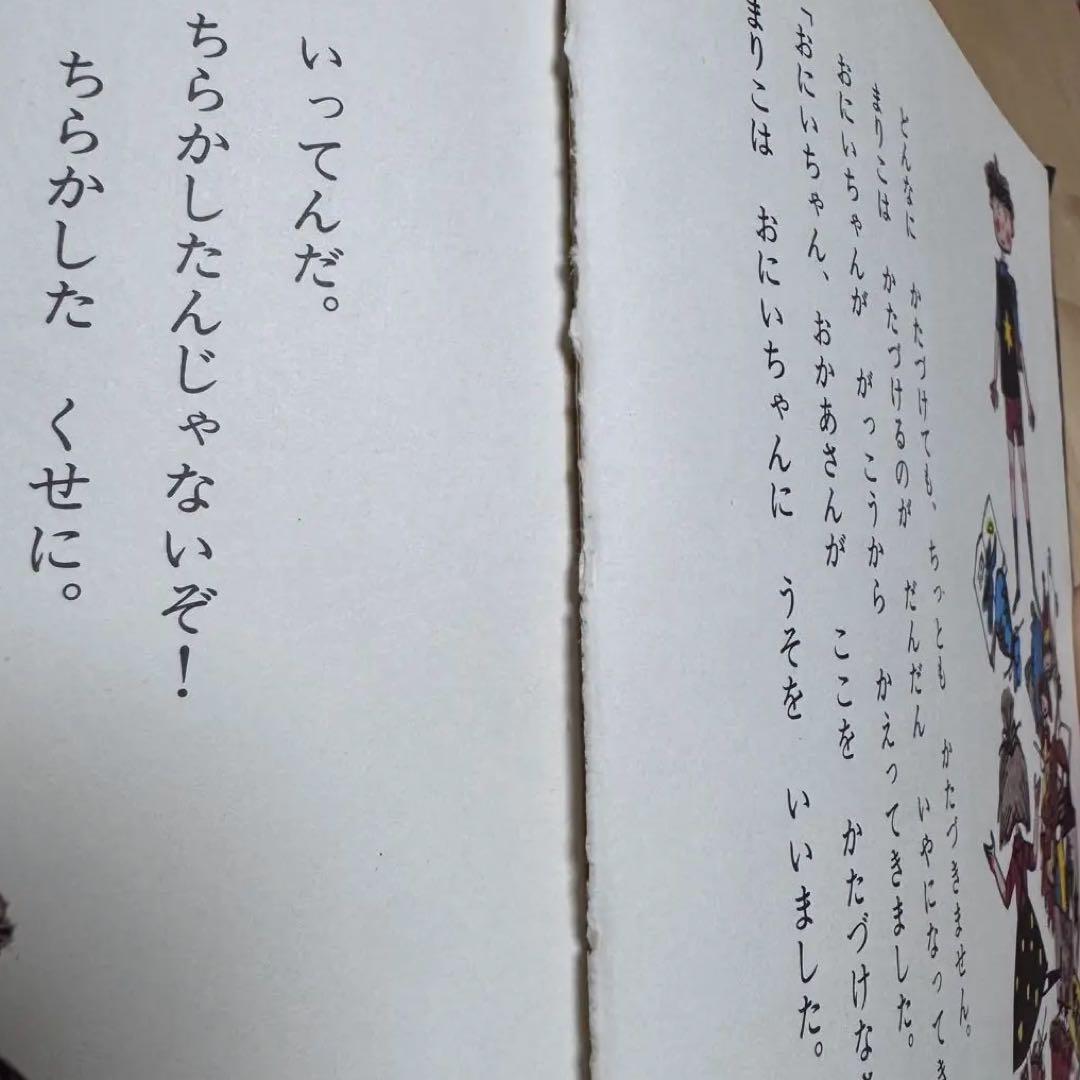 どんなに　かたづけても、ちっとも　かたづきません。
まりこは　かたづけるのが　だんだん　いやになってき
おにいちゃんが　がっこうから　かえってきました。
「おにいちゃん、おかあさんが　ここを　かたづけな
まりこは　おにいちゃんに　うそを　いいました。
いってんだ。
ちらかしたんじゃないぞ！
ちらかした　くせに。